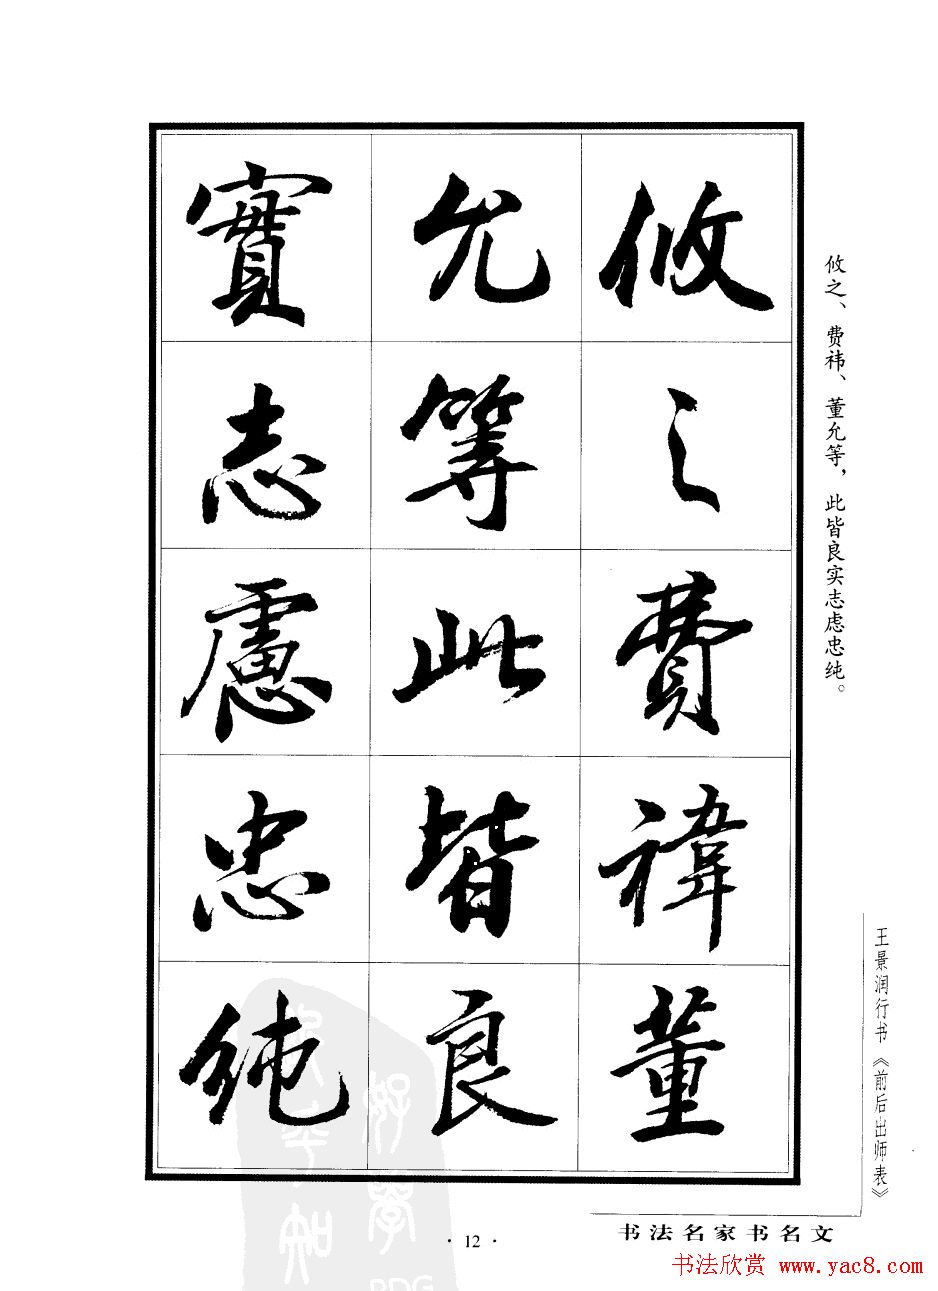 攸之費禕董
允等此皆良
實志慮忠純
攸之、费祎、董允等，此皆良实志虑忠纯。
王景润行书《前后出师表》
书法名家书名文
· 12 ·
书法欣赏 www.yac8.com